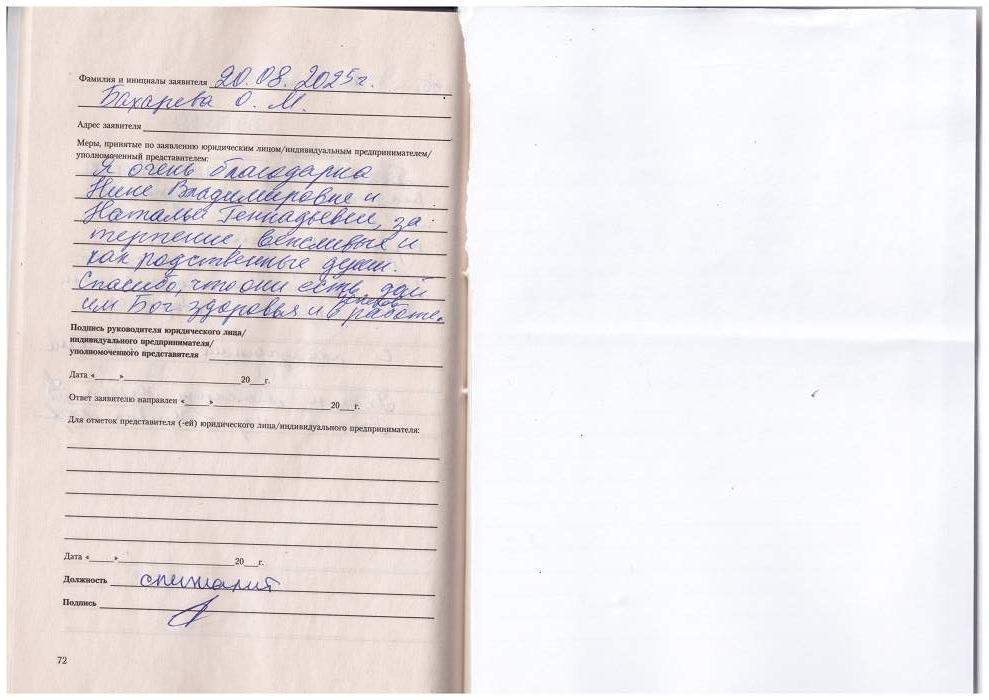 Фамилия и инициалы заявителя 20.08.2025г.
Бахарева О. М.
Адрес заявителя
Меры, принятые по заявлению юридическим лицом/индивидуальным предпринимателем/
уполномоченный представителем:
Я очень благодарна
Нине Владимировне и
Наталье Геннадьевне, за
терпение, вежливые и
как родственные души.
Спасибо, что они есть, дай
им Бог здоровья и в работе.
Подпись руководителя юридического лица/
индивидуального предпринимателя/
уполномоченного представителя
Дата «____»____20___г.
Ответ заявителю направлен «____»____20___г.
Для отметок представителя (-ей) юридического лица/индивидуального предпринимателя:
Дата «____»____20___г.
Должность специалист
Подпись
72